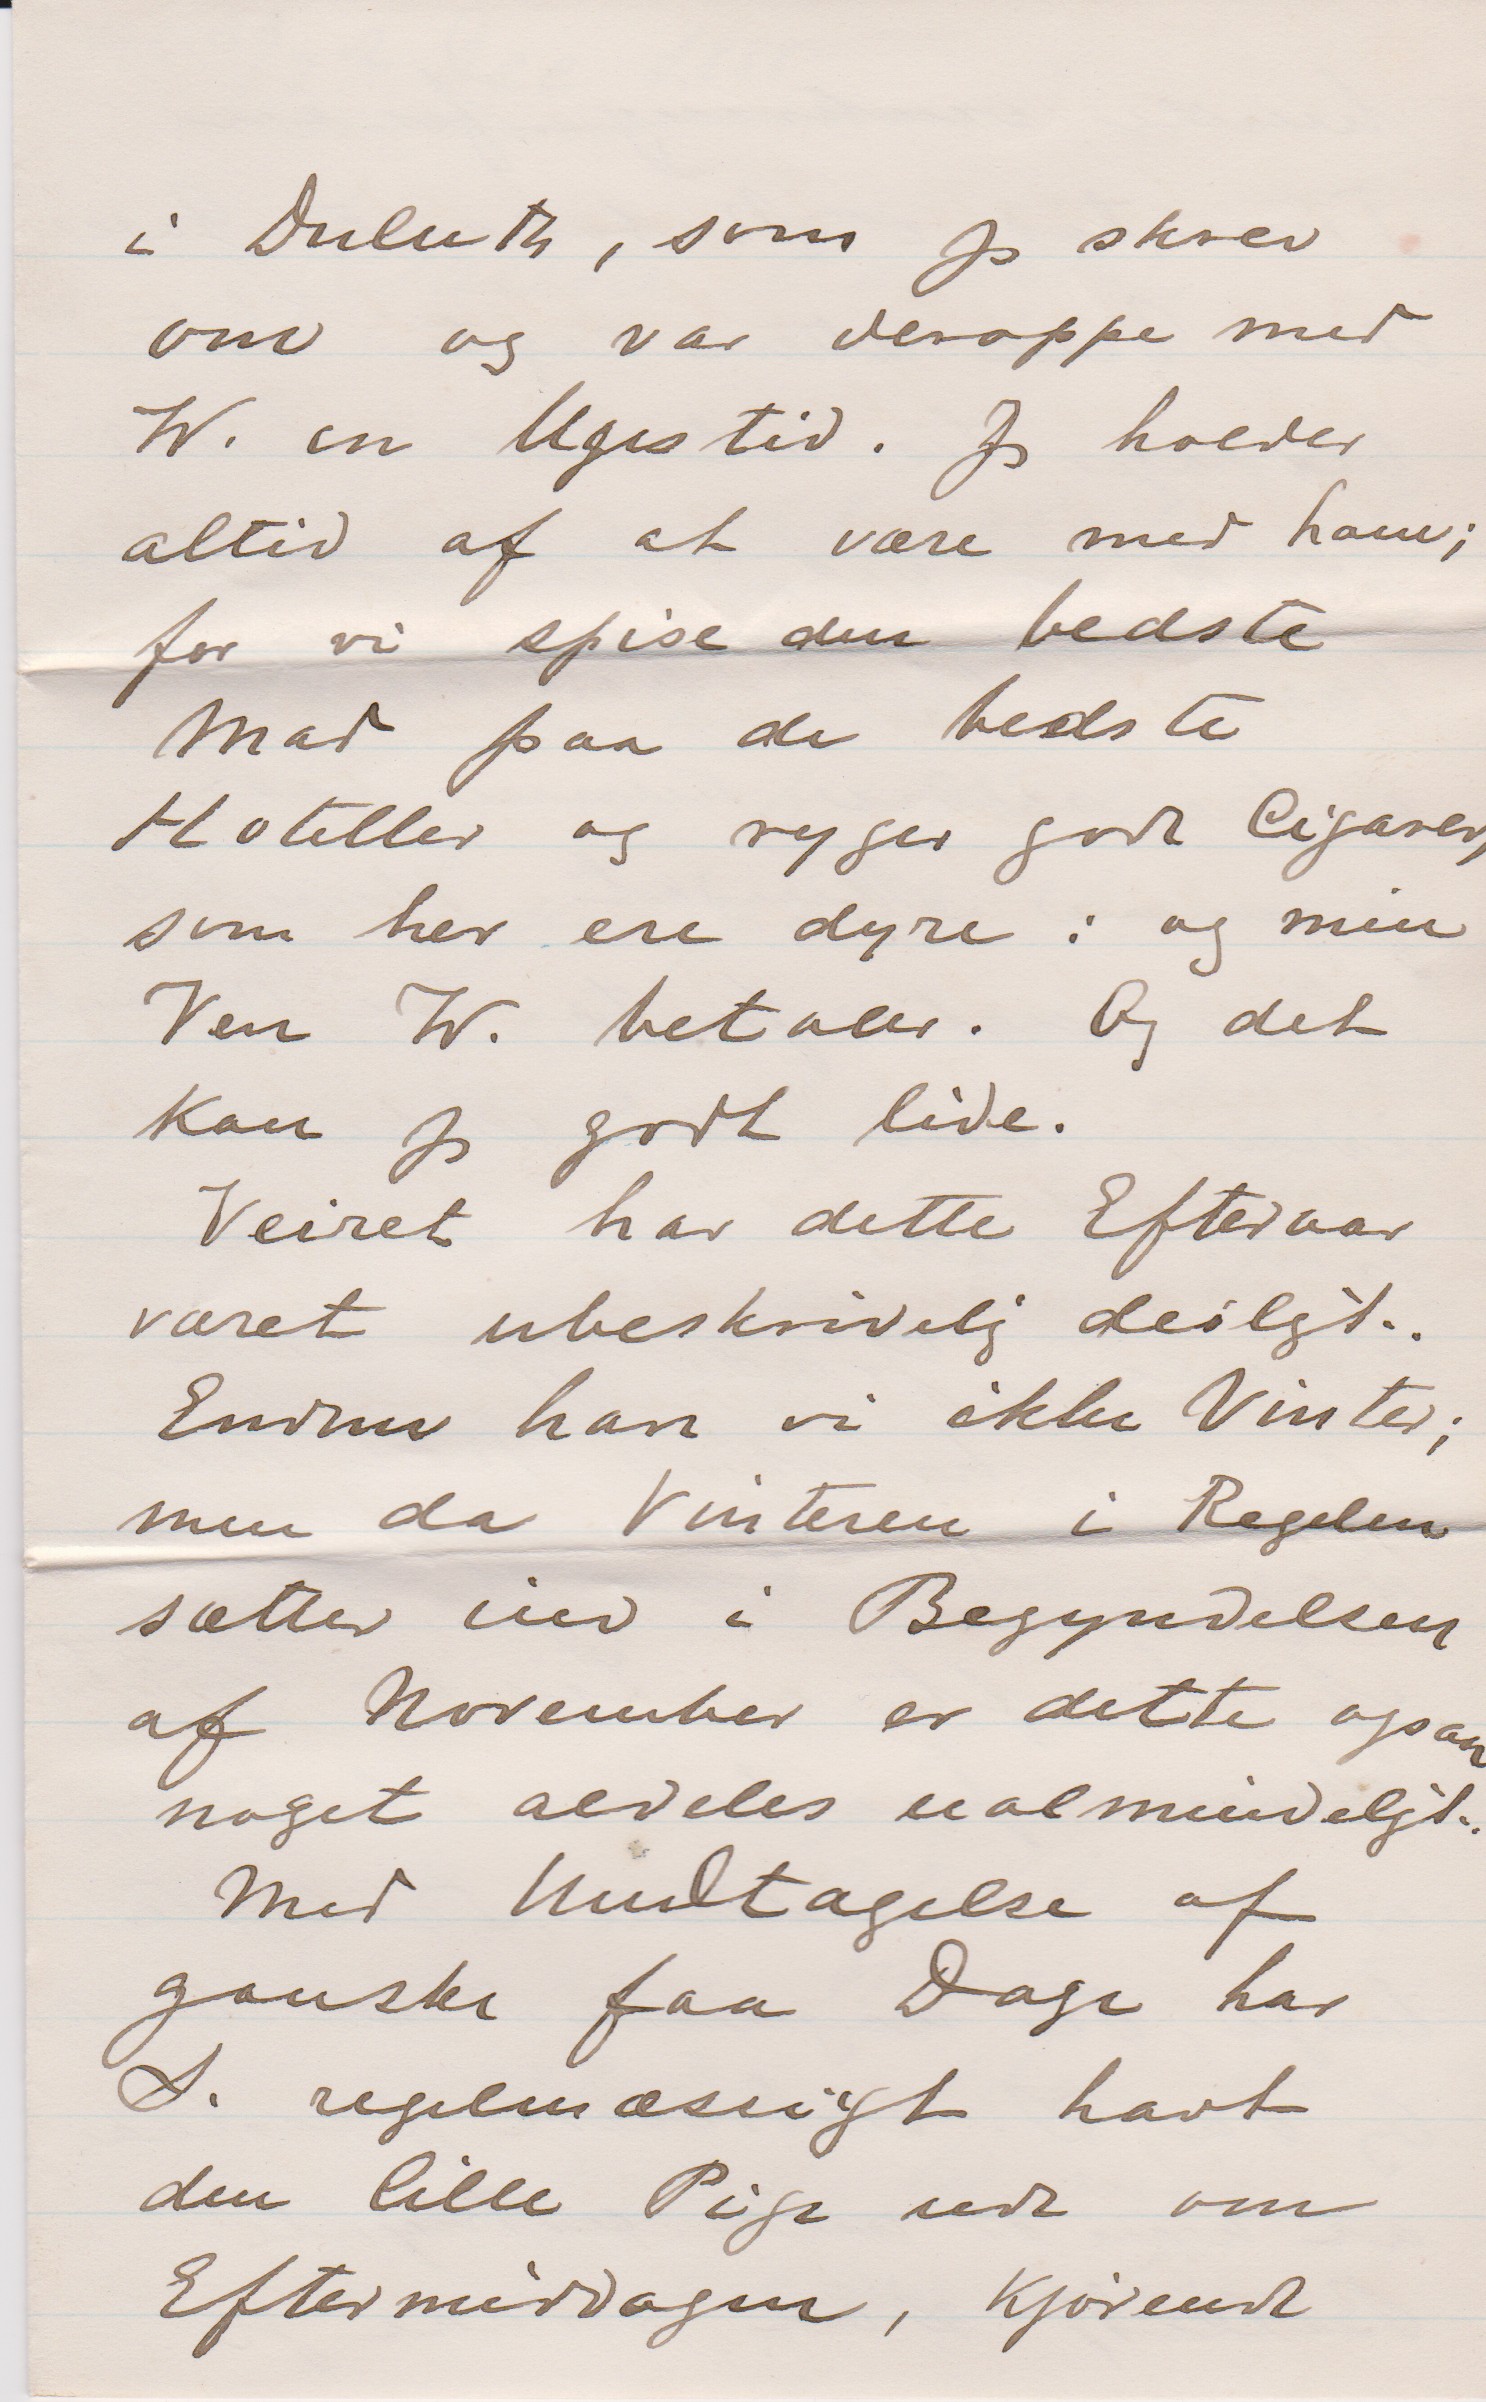 i Duluth, som jeg skrev
om og var deroppe med
W. en Ugestid. Jeg holder
altid af at være med ham;
for vi spise den bedste
Mad paa de bedste
Hoteller og ryger gode Cigarer,
som her ere dyre: og min
Ven W. betaler. Og det
kan jeg godt lide.
Veiret har dette Efteraar
været ubeskrivelig deiligt.
Endnu have vi ikke Vinter;
men da Vinteren i Regelen
sætter ind i Begyndelsen
af November er dette ogsaa
noget aldeles ualmindeligt.
Med Undtagelse af
ganske faa Dage har
S. regelmæssigt havt
den lille Pige ude om
Eftermiddagen, kjørende